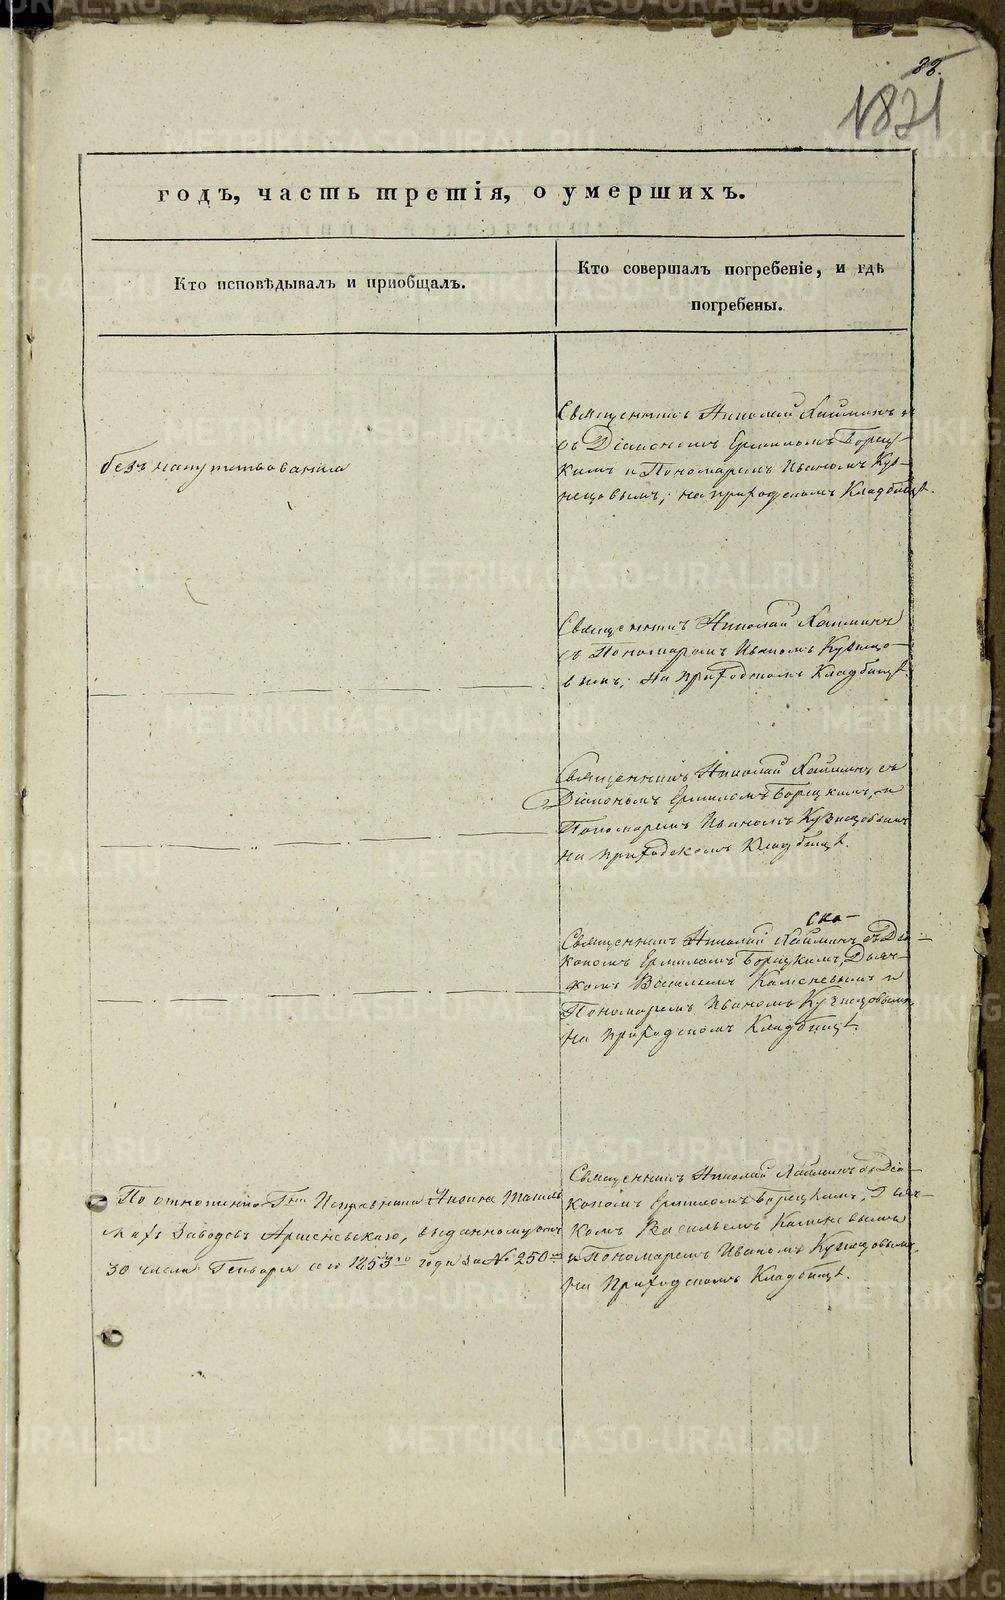 88.
1831
годъ, часть третія, о умершихъ.
Кто исповѣдывалъ и приобщалъ.
Кто совершалъ погребеніе, и гдѣ
погребены.
безъ напутствованія
Священникъ Николай
съ Діакономъ Ермиломъ Борец-
кимъ и Пономаремъ Иваномъ Куз-
нецовымъ; на приходскомъ Кладбищѣ.
Священникъ Николай
съ Пономаремъ Иваномъ Кузнецо-
вымъ; на приходскомъ Кладбищѣ.
Священникъ Николай съ
Діакономъ Ермиломъ Борецкимъ, и
Пономаремъ Иваномъ Кузнецовымъ
на приходскомъ Кладбищѣ.
Священникъ Николай съ Діа-
кономъ Ермиломъ Борецкимъ, Дьяч-
комъ Васильемъ и
Пономаремъ Иваномъ Кузнецовымъ,
на приходскомъ Кладбищѣ.
По отношенію Исправника
Заводовъ выданному отъ
30 числа Генваря сего 1853го года за № 250
Священникъ Николай съ Діа-
кономъ Ермиломъ Борецкимъ, Дьяч-
комъ Васильемъ
и Пономаремъ Иваномъ Кузнецовымъ,
на Приходскомъ Кладбищѣ.
METRIKI.GASO-URAL.RU